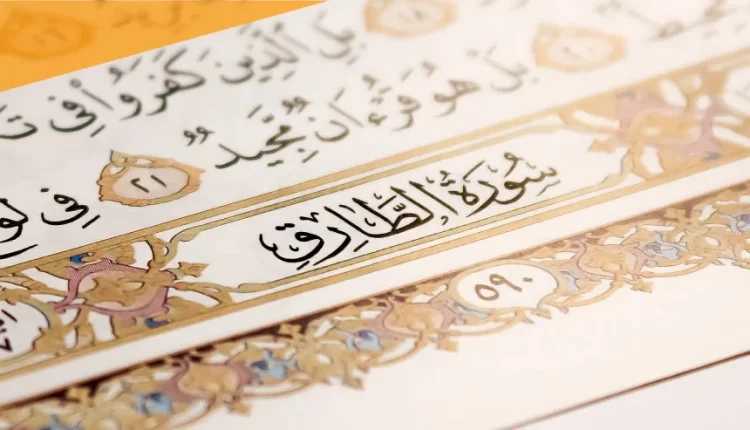 ١٨ بَلِ ٱلَّذِينَ كَفَرُوا۟ فِى
٢٠ بَلْ هُوَ قُرْءَانٌ مَّجِيدٌ ٢١ فِى
سُورَةُ الطَّارِقِ
٥٩٠